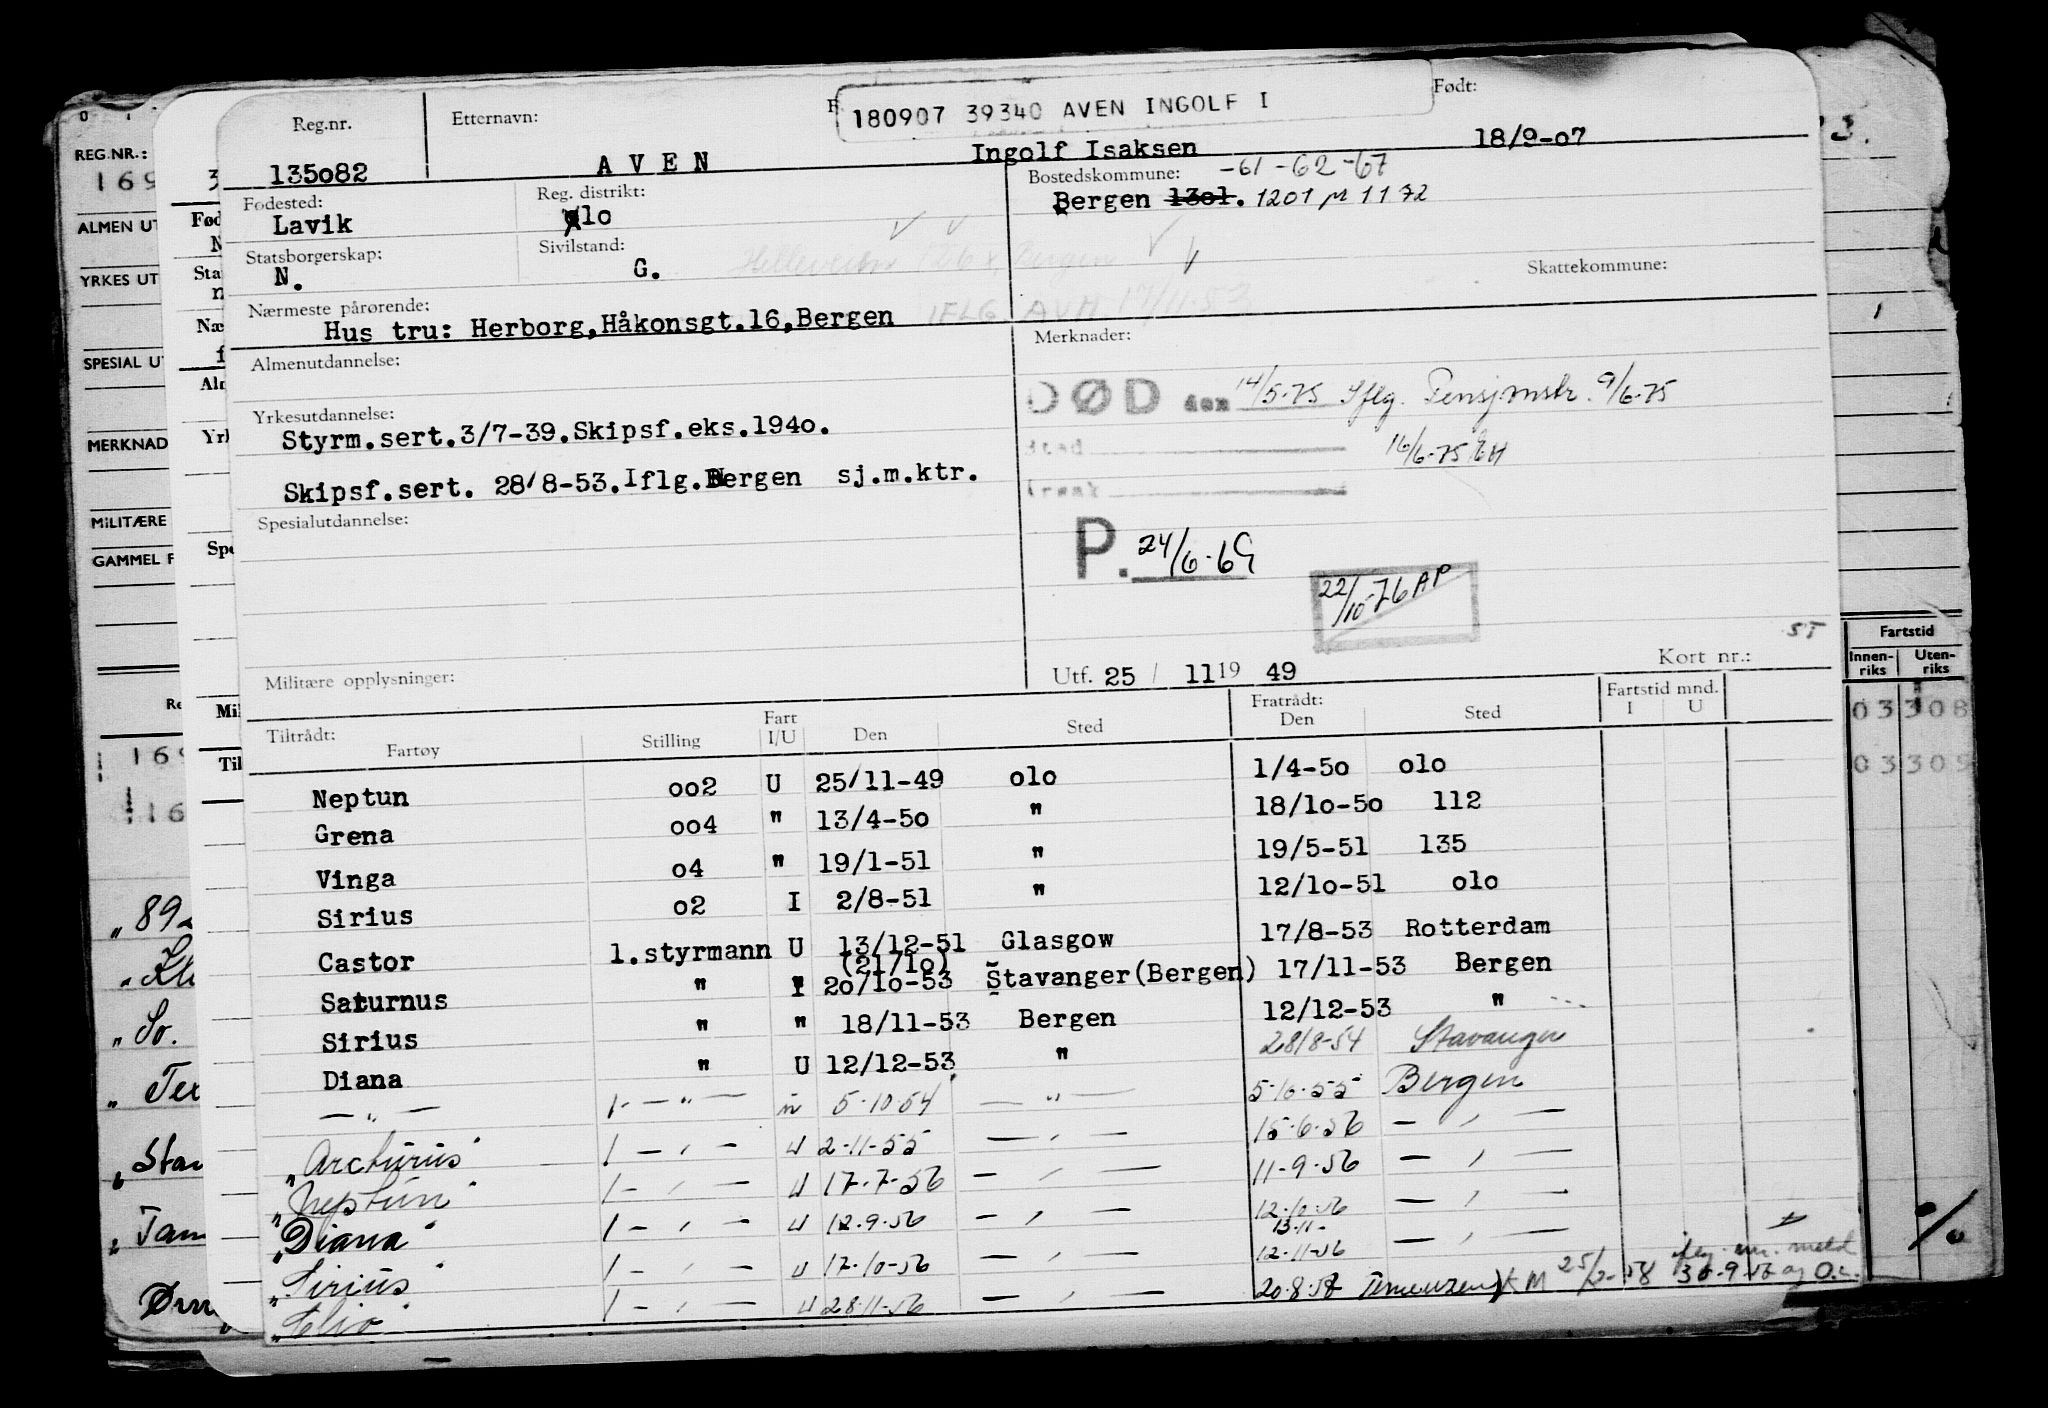 180907 39340 AVEN INGOLF I
Reg.nr. Etternavn: Født:
135o82 A V E N Ingolf Isaksen 18/9-o7
Fødested: Reg. distrikt: Bostedskommune: -61-62-67
Lavik olo Bergen 13o1. 1201 1172
Statsborgerskap: Sivilstand: Skattekommune:
N. G.
IFLG. AVM 17/11-53
Nærmeste pårørende:
Hus tru: Herborg,Håkonsgt.16,Bergen
Almenutdannelse: Merknader:
DØD den 14/5-75 Iflg. Pensjonstr. 9/6-75
Yrkesutdannelse:
Styrm.sert.3/7-39.Skipsf.eks.194o.
Sted 16/6-75 EH
Skipsf.sert. 28/8-53.Iflg.Bergen sj.m.ktr.
Årsak
Spesialutdannelse:
P. 24/6-69
22/10-76 AP
ST
Militære opplysninger: Utf. 25 / 11 19 49 Kort nr.:
Tiltrådt: Fratrådt: Fartstid mnd.
Fartøy Stilling Fart I/U Den Sted Den Sted I U
Neptun oo2 U 25/11-49 olo 1/4-5o olo
Grena oo4 " 13/4-5o " 18/1o-5o 112
Vinga o4 " 19/1-51 " 19/5-51 135
Sirius o2 I 2/8-51 " 12/1o-51 olo
Castor 1.styrmann U 13/12-51 Glasgow 17/8-53 Rotterdam
(21/1o)
Saturnus " I 2o/1o-53 Stavanger(Bergen) 17/11-53 Bergen
Sirius " " 18/11-53 Bergen 12/12-53 "
Diana " U 12/12-53 " 28/8-54 Stavanger
— " — 1- — " — 5-10-54 — " — 5-10-55 Bergen
"Arcturus" 1 — " — U 2-11-55 — " — 15-6-56 — " —
"Neptun" 1 — " — U 17-7-56 — " — 11-9-56 — " —
"Diana" 1 — " — U 12.9.56 — " — 12-10-56 — " —
13-11-
"Sirius" 1 — " — U 17-10-56 — " — 12-11-56 — " —
"Clio" 1 — " — U 28-11-56 — " — 20.8.57
REG.NR.:
169
ALMEN UT
YRKES UT
SPESIAL UT
MERKNAD
MILITÆRE
GAMMEL F
Fartstid
Innen-riks Uten-riks
03 308
03 309
"89
"So.
"Star
"Tam